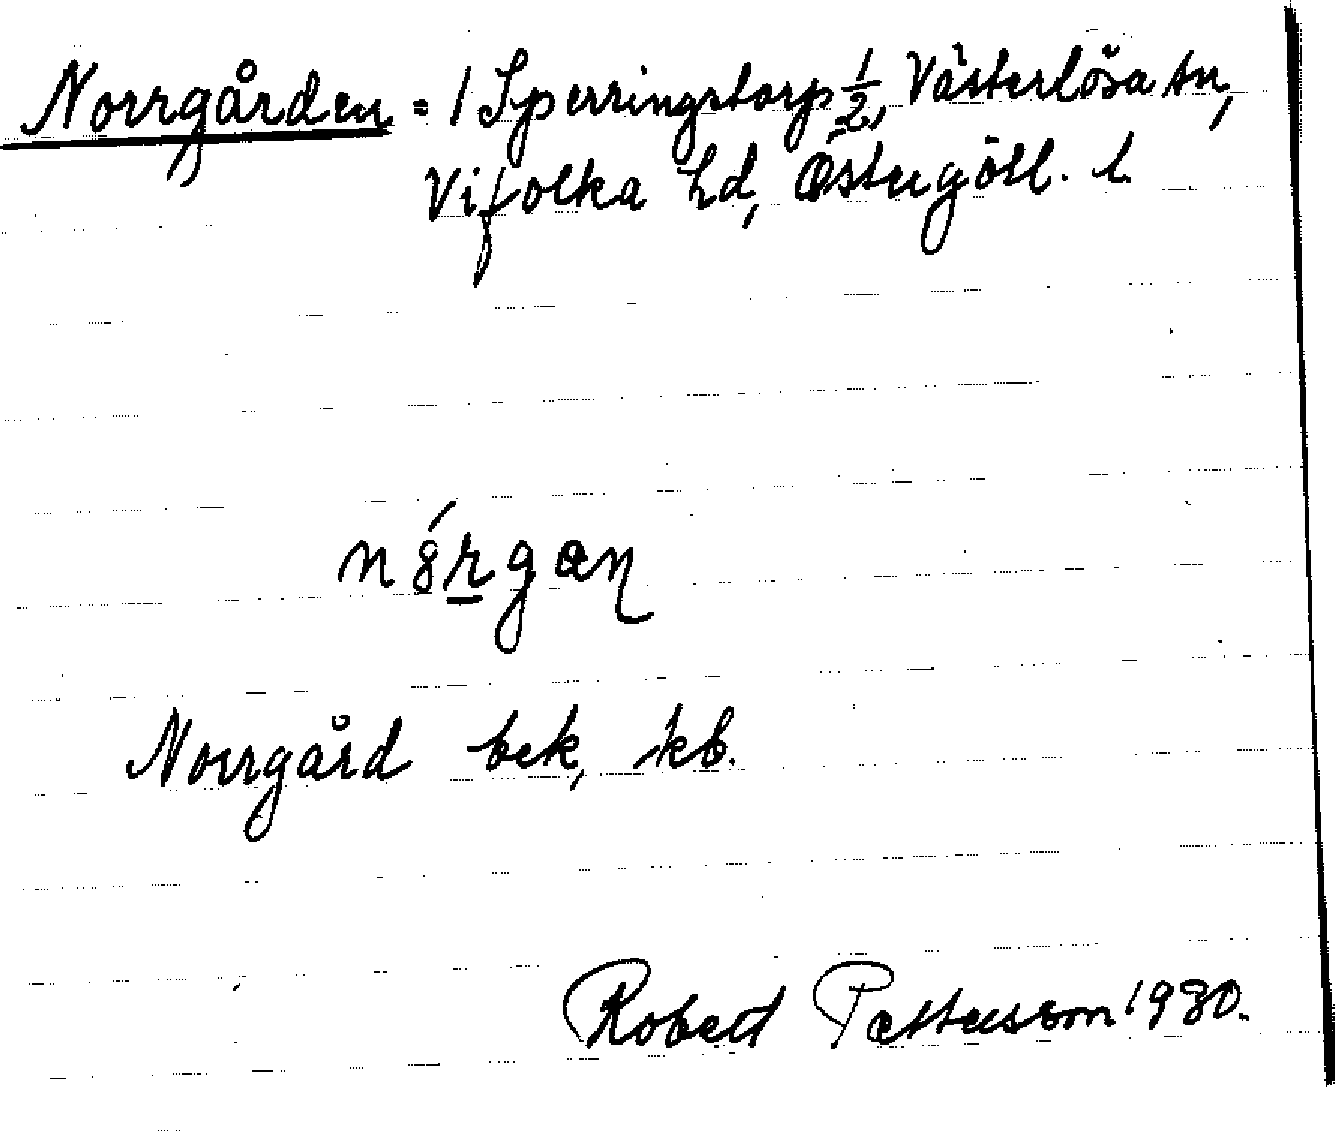 Norrgården = 1 Sperringstorp ½, Västerlösa sn,
Vifolka hd, Östergötl. l.
Norrgård bek, kb.
Robert Pettersson 1930.